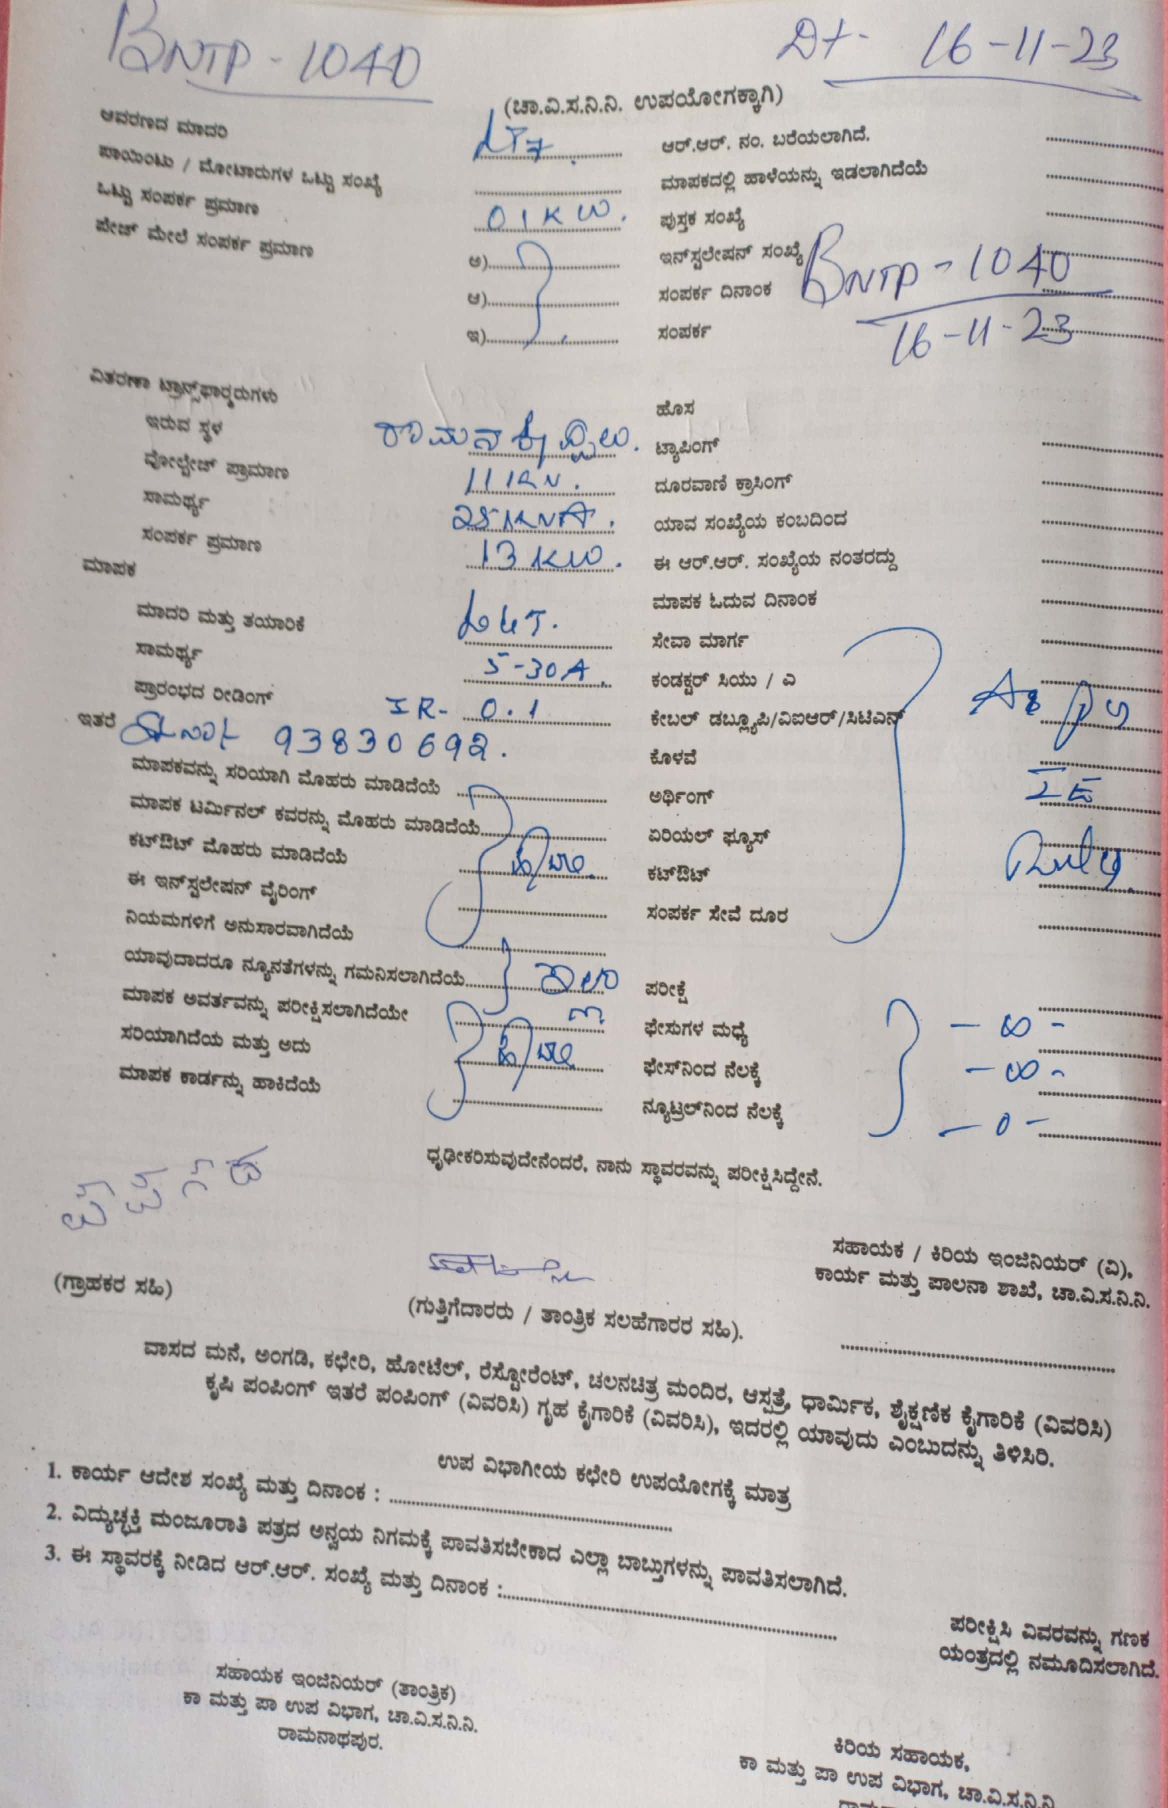 BNTP - 1040
Dt- 16-11-23
(ಚಾ.ವಿ.ಸ.ನಿ.ನಿ. ಉಪಯೋಗಕ್ಕಾಗಿ)
ಆವರಣದ ಮಾದರಿ LT7.
ಆರ್.ಆರ್. ನಂ. ಬರೆಯಲಾಗಿದೆ.
ಪಾಯಿಂಟು / ಮೋಟಾರುಗಳ ಒಟ್ಟು ಸಂಖ್ಯೆ
ಮಾಪಕದಲ್ಲಿ ಹಾಳೆಯನ್ನು ಇಡಲಾಗಿದೆಯೆ
ಒಟ್ಟು ಸಂಪರ್ಕ ಪ್ರಮಾಣ 01KW.
ಪುಸ್ತಕ ಸಂಖ್ಯೆ
ಪೇಜ್ ಮೇಲೆ ಸಂಪರ್ಕ ಪ್ರಮಾಣ ಅ)
ಇನ್‌ಸ್ಟಲೇಷನ್ ಸಂಖ್ಯೆ BNTP - 1040
ಆ)
ಸಂಪರ್ಕ ದಿನಾಂಕ 16-11-23
ಇ)
ಸಂಪರ್ಕ
ವಿತರಣಾ ಟ್ರಾನ್ಸ್‌ಫಾರ್ಮರುಗಳು
ಹೊಸ
ಇರುವ ಸ್ಥಳ
ಟ್ಯಾಪಿಂಗ್
ವೋಲ್ಟೇಜ್ ಪ್ರಾಮಾಣ 11KV.
ದೂರವಾಣಿ ಕ್ರಾಸಿಂಗ್
ಸಾಮರ್ಥ್ಯ 25KVA.
ಯಾವ ಸಂಖ್ಯೆಯ ಕಂಬದಿಂದ
ಸಂಪರ್ಕ ಪ್ರಮಾಣ 13KW.
ಈ ಆರ್.ಆರ್. ಸಂಖ್ಯೆಯ ನಂತರದ್ದು
ಮಾಪಕ
ಮಾಪಕ ಓದುವ ದಿನಾಂಕ
ಮಾದರಿ ಮತ್ತು ತಯಾರಿಕೆ L&T.
ಸೇವಾ ಮಾರ್ಗ
ಸಾಮರ್ಥ್ಯ 5-30A.
ಕಂಡಕ್ಟರ್ ಸಿಯು / ಎ
ಪ್ರಾರಂಭದ ರೀಡಿಂಗ್ IR- 0.1
ಕೇಬಲ್ ಡಬ್ಲ್ಯೂಪಿ/ವಿಐಆರ್/ಸಿಟಿಎಸ್
ಇತರೆ 93830692.
ಕೊಳವೆ
ಮಾಪಕವನ್ನು ಸರಿಯಾಗಿ ಮೊಹರು ಮಾಡಿದೆಯೆ
ಅರ್ಥಿಂಗ್
ಮಾಪಕ ಟರ್ಮಿನಲ್ ಕವರನ್ನು ಮೊಹರು ಮಾಡಿದೆಯೆ
ಏರಿಯಲ್ ಫ್ಯೂಸ್
ಕಟ್‌ಔಟ್ ಮೊಹರು ಮಾಡಿದೆಯೆ
ಕಟ್‌ಔಟ್
ಈ ಇನ್‌ಸ್ಟಲೇಷನ್ ವೈರಿಂಗ್
ಸಂಪರ್ಕ ಸೇವೆ ದೂರ
ನಿಯಮಗಳಿಗೆ ಅನುಸಾರವಾಗಿದೆಯೆ
ಯಾವುದಾದರೂ ನ್ಯೂನತೆಗಳನ್ನು ಗಮನಿಸಲಾಗಿದೆಯೆ
ಪರೀಕ್ಷೆ
ಮಾಪಕ ಅವರ್ತವನ್ನು ಪರೀಕ್ಷಿಸಲಾಗಿದೆಯೇ
ಫೇಸುಗಳ ಮಧ್ಯೆ - ∞ -
ಸರಿಯಾಗಿದೆಯ ಮತ್ತು ಅದು
ಫೇಸ್‌ನಿಂದ ನೆಲಕ್ಕೆ - ∞ -
ಮಾಪಕ ಕಾರ್ಡನ್ನು ಹಾಕಿದೆಯೆ
ನ್ಯೂಟ್ರಲ್‌ನಿಂದ ನೆಲಕ್ಕೆ - 0 -
ಧೃಢೀಕರಿಸುವುದೇನೆಂದರೆ, ನಾನು ಸ್ಥಾವರವನ್ನು ಪರೀಕ್ಷಿಸಿದ್ದೇನೆ.
ಸಹಾಯಕ / ಕಿರಿಯ ಇಂಜಿನಿಯರ್ (ವಿ),
ಕಾರ್ಯ ಮತ್ತು ಪಾಲನಾ ಶಾಖೆ, ಚಾ.ವಿ.ಸ.ನಿ.ನಿ.
(ಗ್ರಾಹಕರ ಸಹಿ)
(ಗುತ್ತಿಗೆದಾರರು / ತಾಂತ್ರಿಕ ಸಲಹೆಗಾರರ ಸಹಿ).
ವಾಸದ ಮನೆ, ಅಂಗಡಿ, ಕಛೇರಿ, ಹೋಟೆಲ್, ರೆಸ್ಟೋರೆಂಟ್, ಚಲನಚಿತ್ರ ಮಂದಿರ, ಆಸ್ಪತ್ರೆ, ಧಾರ್ಮಿಕ, ಶೈಕ್ಷಣಿಕ ಕೈಗಾರಿಕೆ (ವಿವರಿಸಿ)
ಕೃಷಿ ಪಂಪಿಂಗ್ ಇತರೆ ಪಂಪಿಂಗ್ (ವಿವರಿಸಿ) ಗೃಹ ಕೈಗಾರಿಕೆ (ವಿವರಿಸಿ), ಇದರಲ್ಲಿ ಯಾವುದು ಎಂಬುದನ್ನು ತಿಳಿಸಿರಿ.
ಉಪ ವಿಭಾಗೀಯ ಕಛೇರಿ ಉಪಯೋಗಕ್ಕೆ ಮಾತ್ರ
1. ಕಾರ್ಯ ಆದೇಶ ಸಂಖ್ಯೆ ಮತ್ತು ದಿನಾಂಕ :
2. ವಿದ್ಯುಚ್ಛಕ್ತಿ ಮಂಜೂರಾತಿ ಪತ್ರದ ಅನ್ವಯ ನಿಗಮಕ್ಕೆ ಪಾವತಿಸಬೇಕಾದ ಎಲ್ಲಾ ಬಾಬ್ತುಗಳನ್ನು ಪಾವತಿಸಲಾಗಿದೆ.
3. ಈ ಸ್ಥಾವರಕ್ಕೆ ನೀಡಿದ ಆರ್.ಆರ್. ಸಂಖ್ಯೆ ಮತ್ತು ದಿನಾಂಕ :
ಪರೀಕ್ಷಿಸಿ ವಿವರವನ್ನು ಗಣಕ
ಯಂತ್ರದಲ್ಲಿ ನಮೂದಿಸಲಾಗಿದೆ.
ಸಹಾಯಕ ಇಂಜಿನಿಯರ್ (ತಾಂತ್ರಿಕ)
ಕಾ ಮತ್ತು ಪಾ ಉಪ ವಿಭಾಗ, ಚಾ.ವಿ.ಸ.ನಿ.ನಿ.
ರಾಮನಾಥಪುರ.
ಕಿರಿಯ ಸಹಾಯಕ,
ಕಾ ಮತ್ತು ಪಾ ಉಪ ವಿಭಾಗ, ಚಾ.ವಿ.ಸ.ನಿ.ನಿ